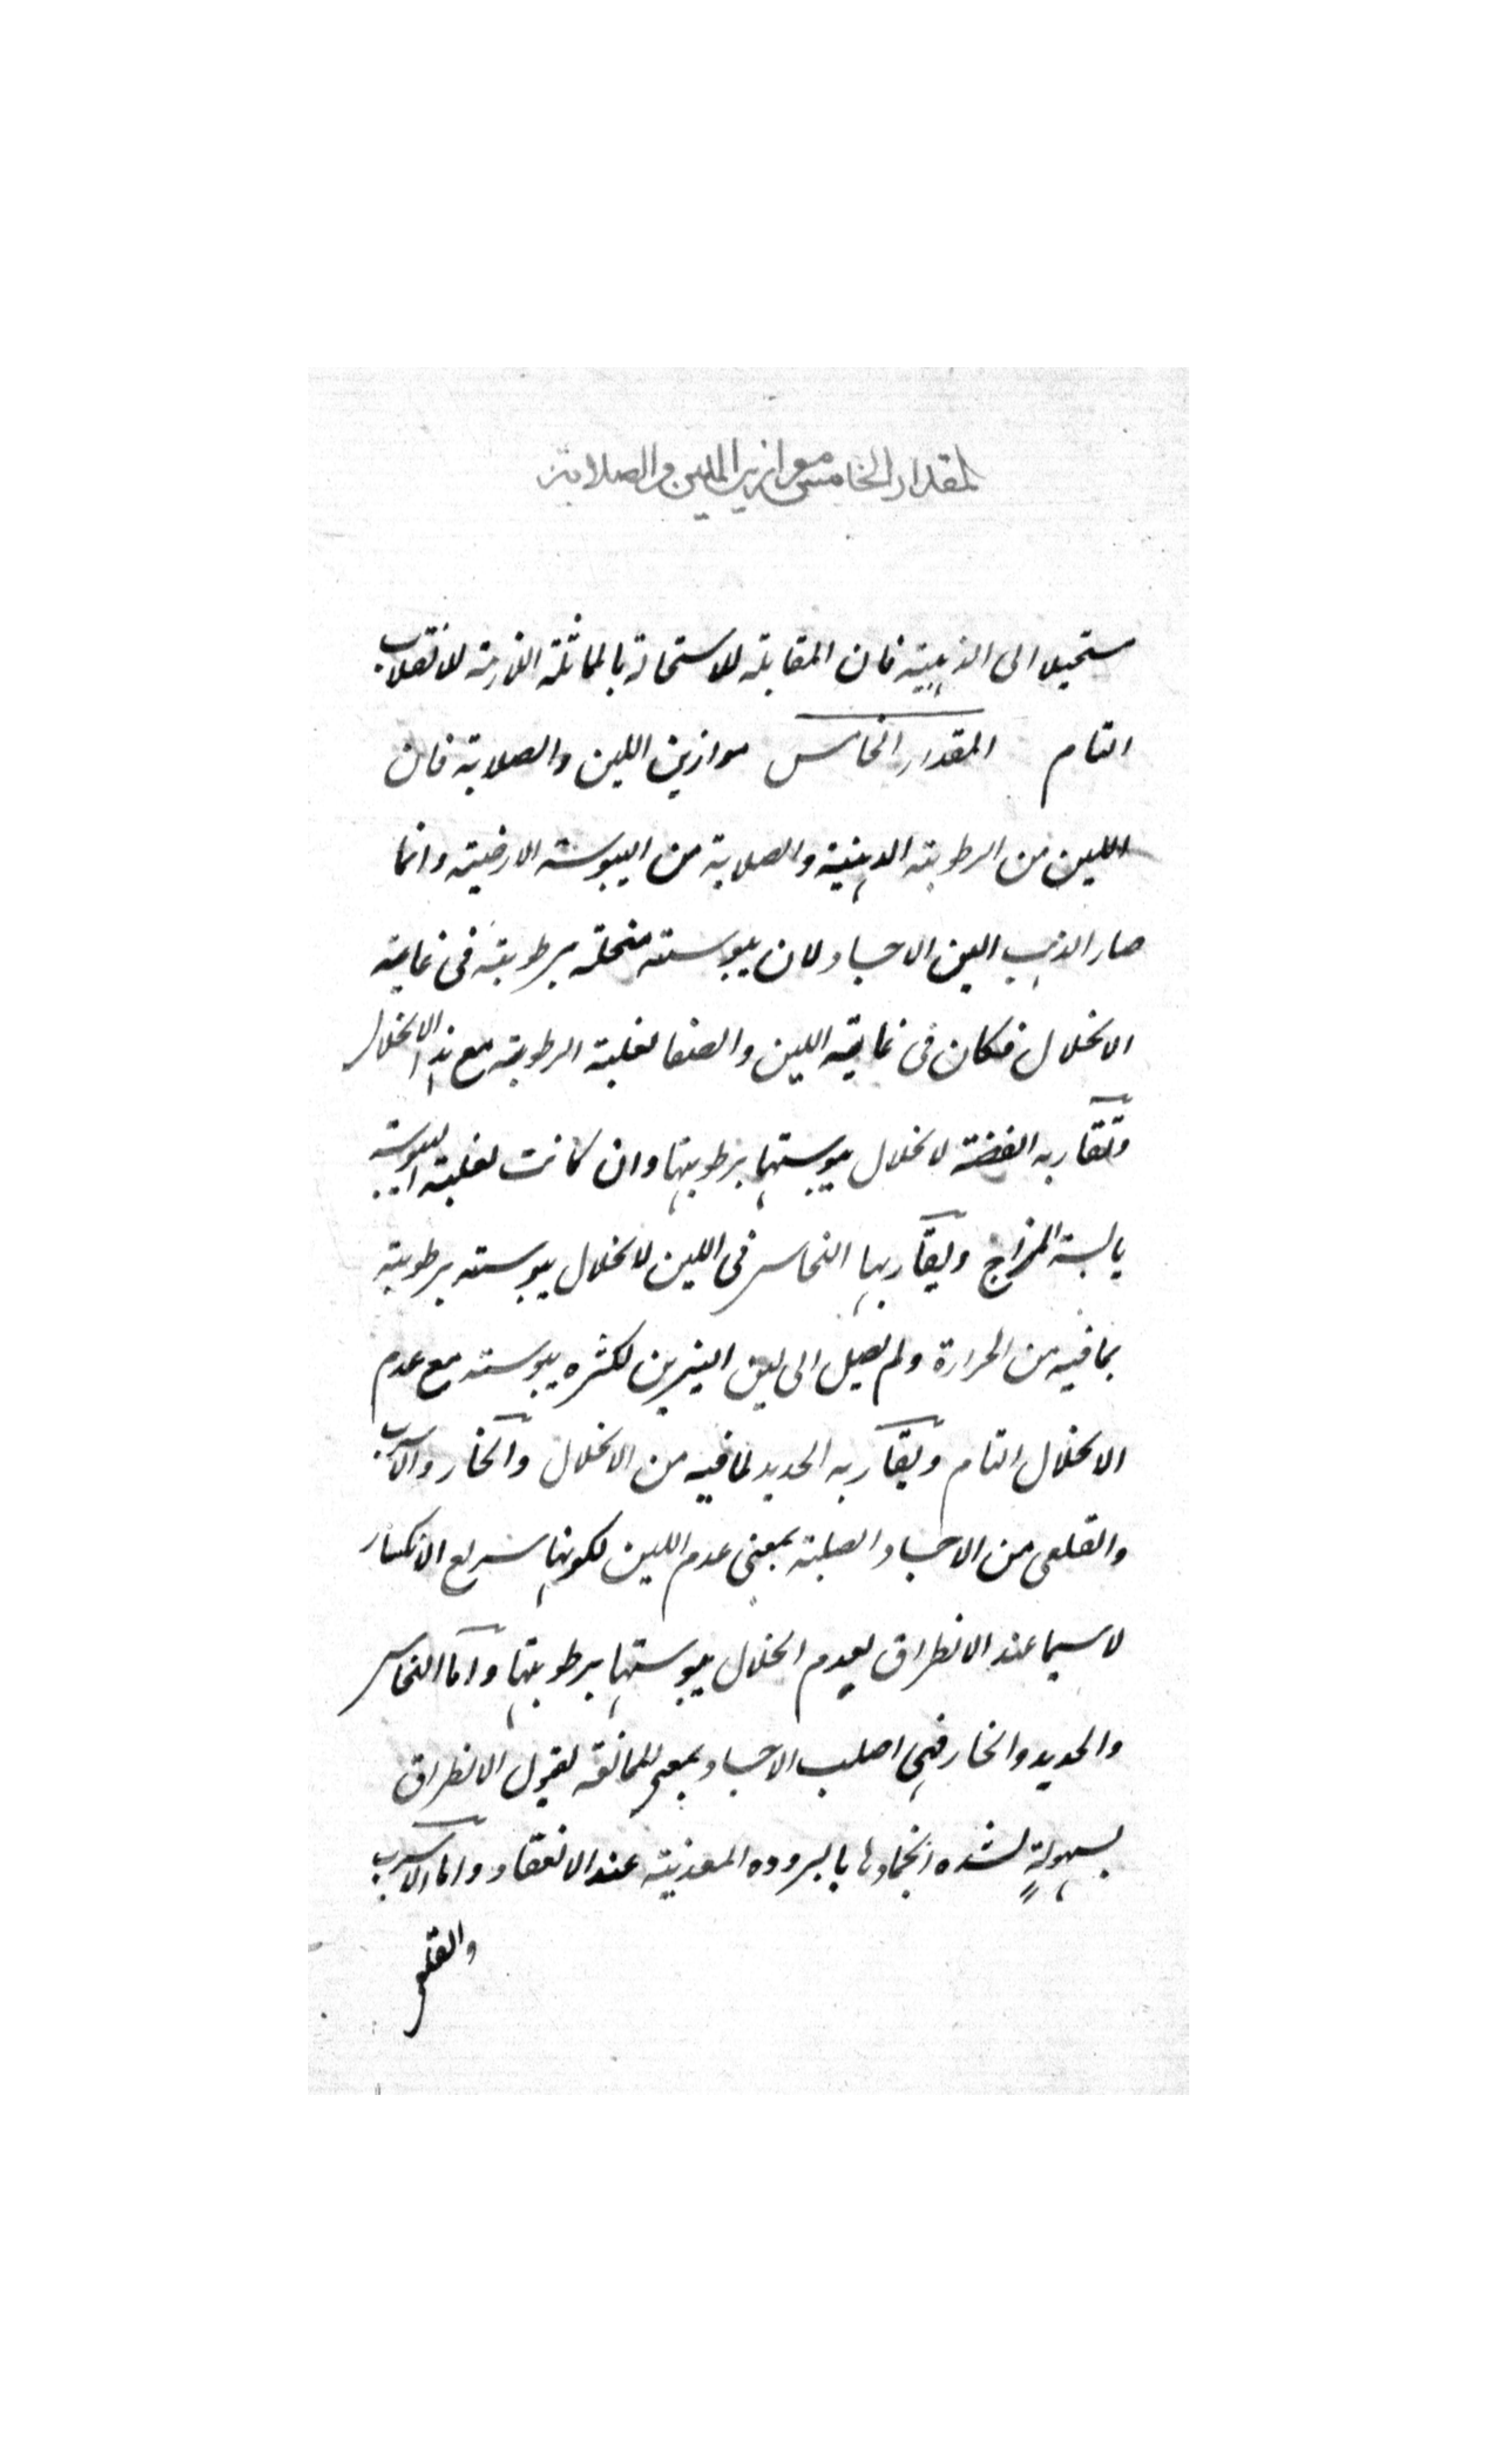 المقدار الخامس موازين اللين والصلابة
مستحيلا الى الذهبية فان المقابلة للاستحالة بالمماثلة اللازمة للانقلاب
التام المقدار الخامس موازين اللين والصلابة فان
اللين من الرطوبة الدهنية والصلابة من اليبوسة الارضية وانما
صار الذهب الين الاجساد لان يبوسته منحلة برطوبته فى غاية
الانحلال فكان فى غاية اللين والصفا لغلبة الرطوبة مع هذا الانحلال
وتقاربه الفضة لانحلال يبوستها برطوبتها وان كانت لغلبة اليبوسة
يابسة المزاج ويقاربها النحاس فى اللين لانحلال يبوسته برطوبته
بما فيه من الحرارة ولم يصل الى لين النيرين لكثره يبوسته مع عدم
الانحلال التام ويقاربه الحديد لما فيه من الانحلال والخار والاسرب
والقلعى من الاجساد الصلبة بمعنى عدم اللين لكونها سريع الانكسار
لا سيما عند الانطراق لعدم انحلال يبوستها برطوبتها واما النحاس
والحديد والخار فهى اصلب الاجساد بمعنى الممانعة لقبول الانطراق
بسهولةٍ لشده انجمادها بالبروده المعدنية عند الانعقاد واما الاسرب
والقلعى